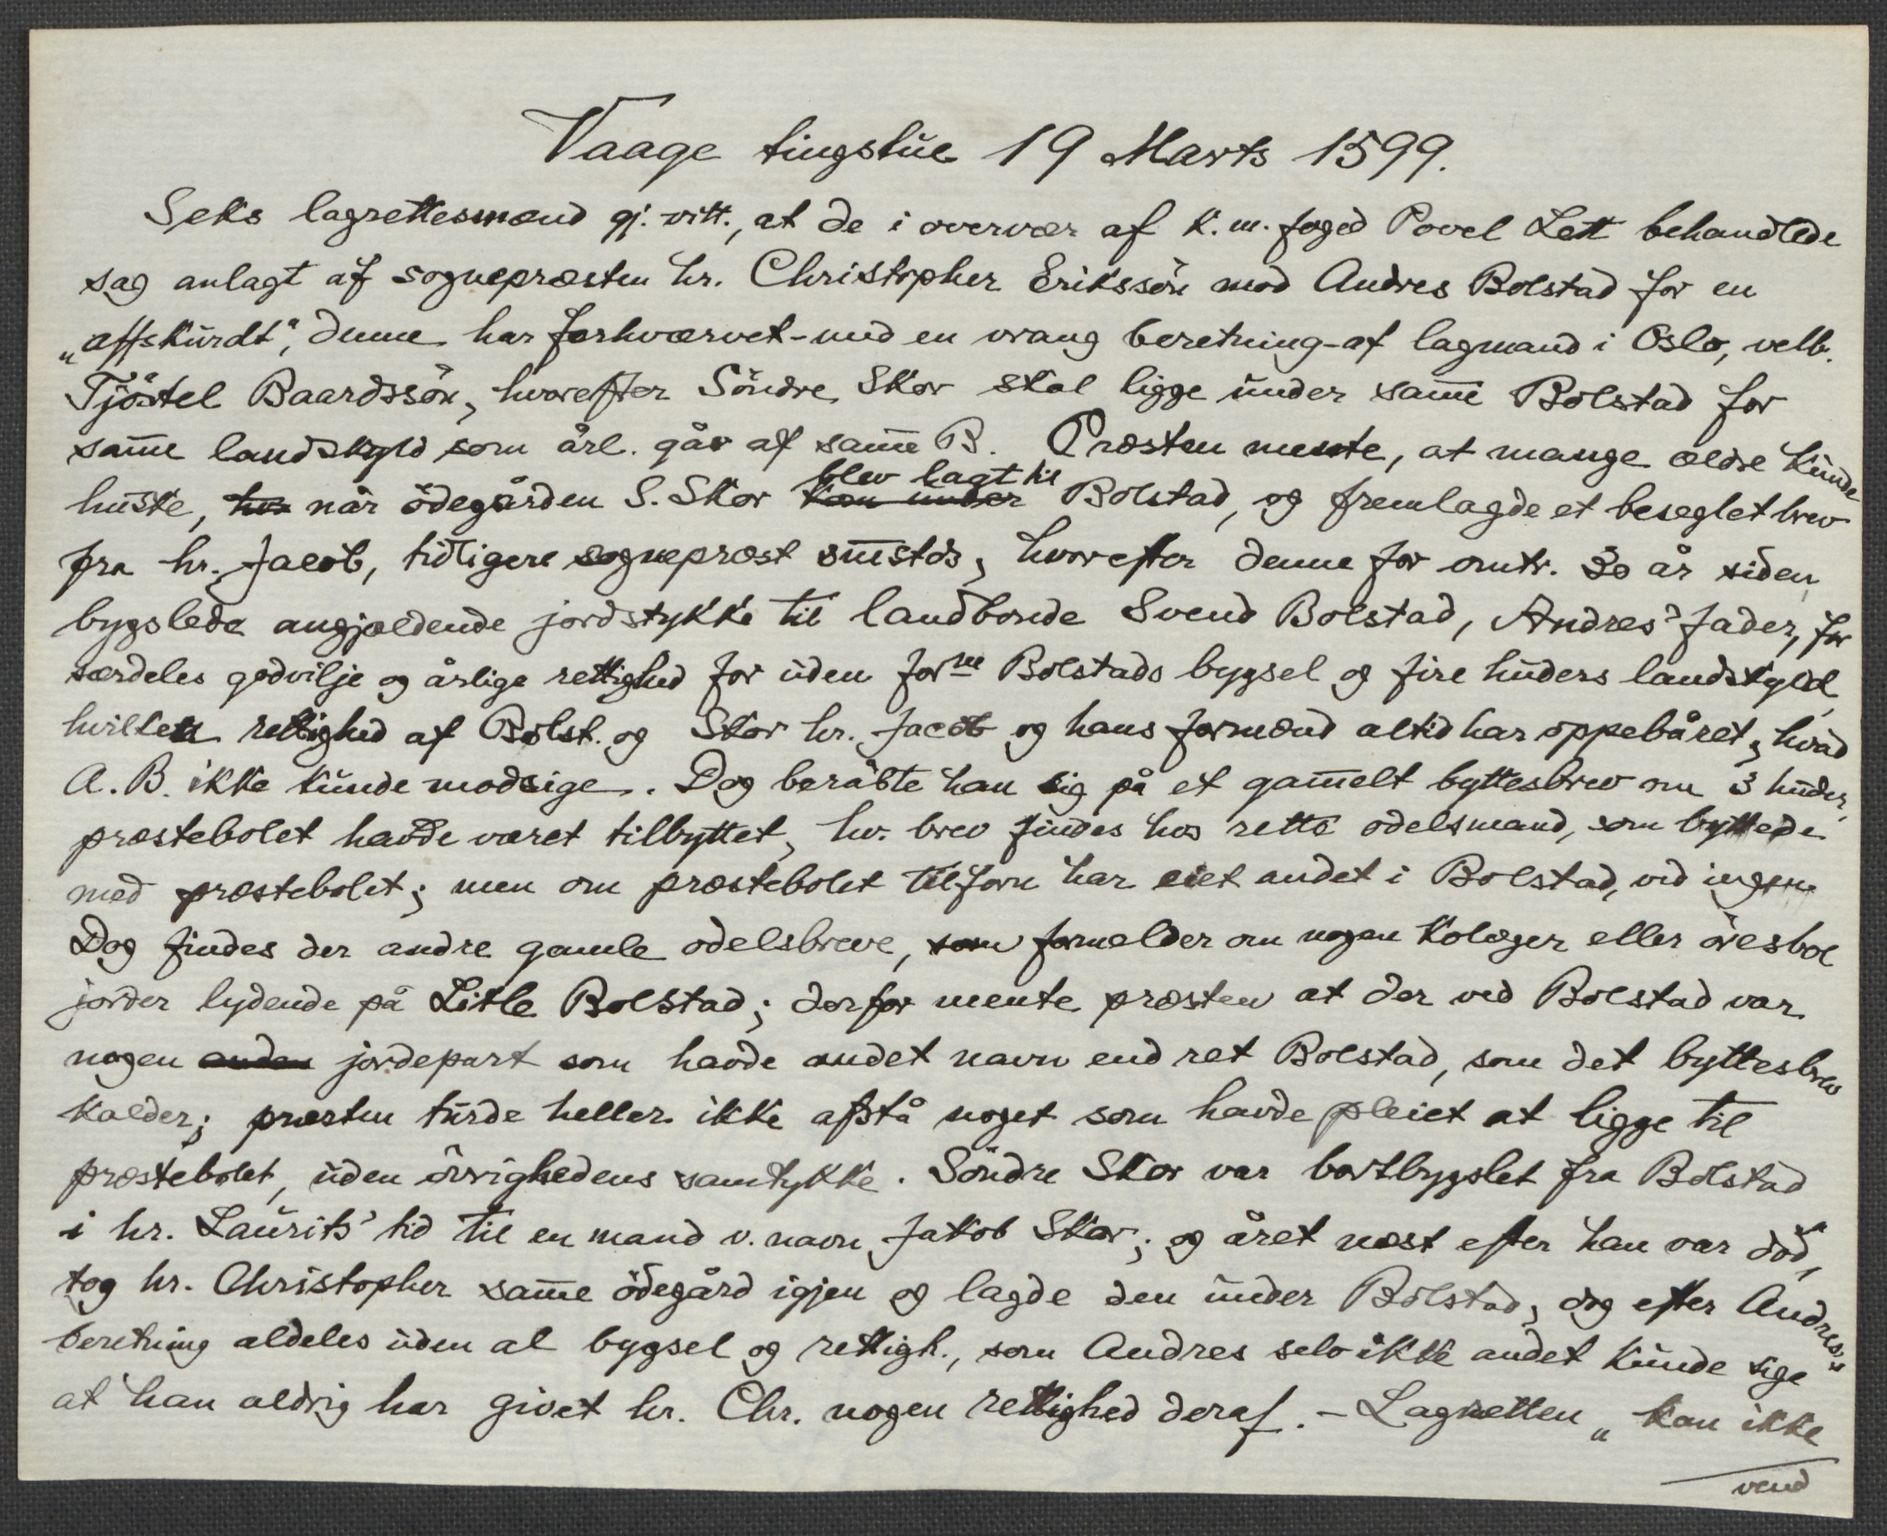 Vaage tingstue 19 Marts 1599.
Seks lagrettesmænd gj. vitt., at de i overvær af k. m. foged Povel Lett behandlede
sag anlagt af sognepræsten hr. Christopher Erikssön mod Andres Bolstad for en
„affskurdt“, denne har forhværvet - med en vrang beretning - af lagmand i Oslo, velb.
Tjöstel Baardssön, hvorefter Söndre Skor skal ligge under sam̅e Bolstad for
sam̅e landskyld som årl. går af sam̅e B. Præsten mente, at mange ældre kunde
huske, når ödegården S. Skor blev lagt til Bolstad, og fremlagde et beseglet brev
fra hr. Jacob, tidligere sognepræst sm̅stds, hvorefter denne for omtr. 30 år siden
bygslede angjældende jordstykke til landbonde Svend Bolstad, Andres' fader, for
særdeles godvilje og årlige rettighed for uden forne Bolstads bygsel og fire huders landskyld,
hvilken rettighed af Bolst. og Skor hr. Jacob og hans formænd altid har oppebåret, hvad
A. B. ikke kunde modsige. Dog beråbte han sig på et gam̅elt byttesbrev om 3 huder,
præstebolet havde været tilbyttet, hv. brev findes hos rette odelsmand, som byttede
med præstebolet; men om præstebolet tilforn har eiet andet i Bolstad, ved ingen
Dog findes der andre gamle odelsbreve, som formelder om nogen Kolæger eller öresbol
jorder lydende på Litle Bolstad; derfor mente præsten at der ved Bolstad var
nogen anden jordepart som havde andet navn end ret Bolstad, som det byttesbrev
kalder; præsten turde heller ikke afstå noget som havde pleiet at ligge til
præstebolet, uden övrighedens samtykke. Söndre Skor var bortbygslet fra Bolstad
i hr. Laurits' tid til en mand v. navn Jakob Skor; og året næst efter han var död,
tog hr. Christopher sam̅e ödegård igjen og lagde den under Bolstad, dog efter Andres's
beretning aldeles uden al bygsel og rettigh., som Andres selv ikke andet kunde sige
at han aldrig har givet hr. Chr. nogen rettighed deraf. - Lagretten „kan ikke
vend